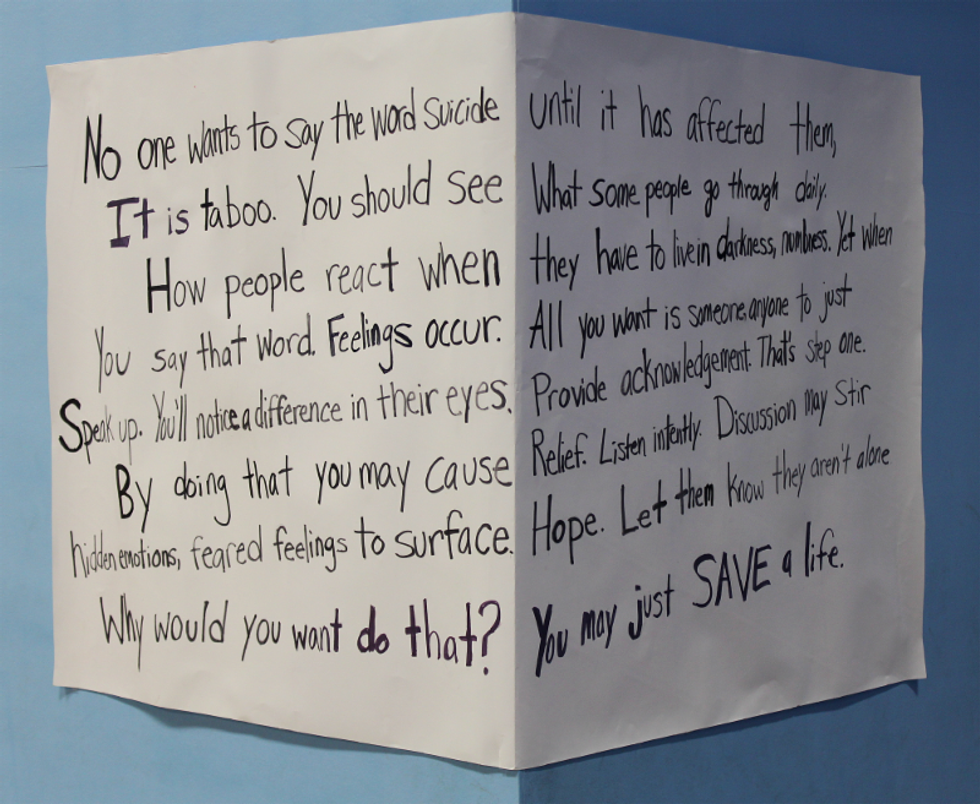 No one wants to say the word suicide until it has affected them,
It is taboo. You should see What some people go through daily.
How people react when they have to live in darkness, numbness. Yet when
You say that word. Feelings occur. All you want is someone, anyone to just
Speak up. You'll notice a difference in their eyes. Provide acknowledgement. That's step one.
By doing that you may cause Relief. Listen intently. Discussion may Stir
hidden emotions, feared feelings to surface. Hope. Let them know they aren't alone
Why would you want do that? You may just SAVE a life.